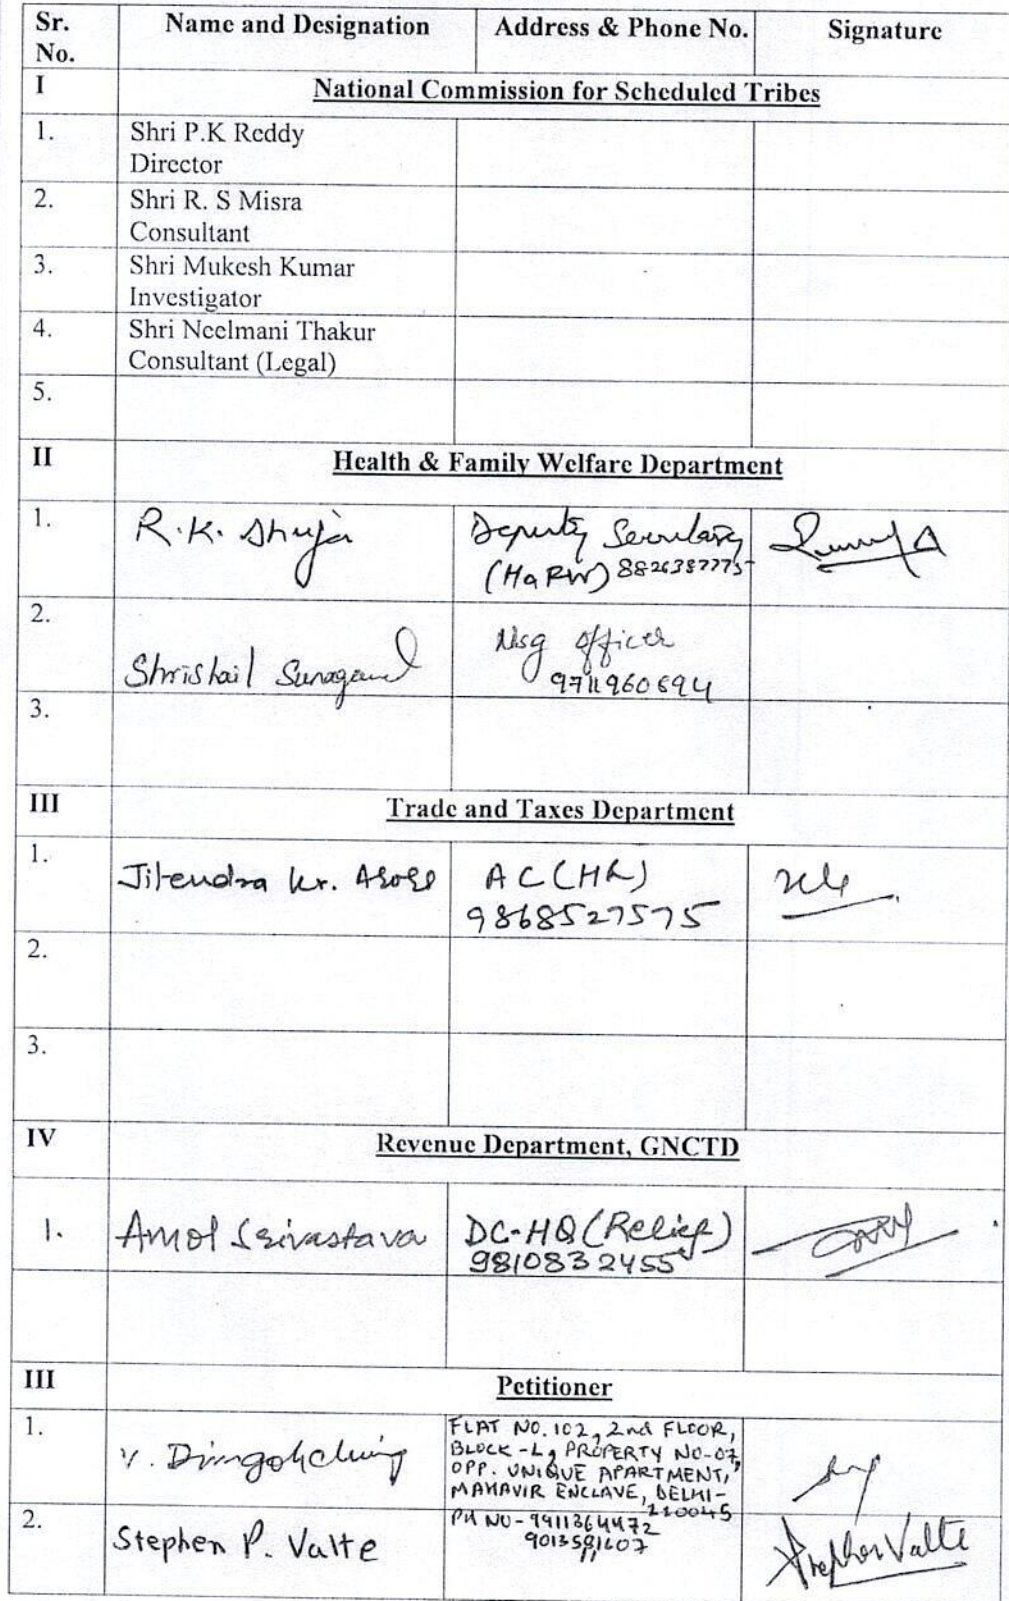 Sr. No. Name and Designation Address & Phone No. Signature
I National Commission for Scheduled Tribes
1. Shri P.K Reddy
Director
2. Shri R. S Misra
Consultant
3. Shri Mukesh Kumar
Investigator
4. Shri Neelmani Thakur
Consultant (Legal)
5.
II Health & Family Welfare Department
1. R.K. Ahuja Deputy Secretary
(H&FW) 8826387775
2. Shrishail Nsg officer
9711960694
3.
III Trade and Taxes Department
1. Jitendra Kr. AC (HR)
9868527575
2.
3.
IV Revenue Department, GNCTD
1. Amol Srivastava DC-HQ (Relief)
9810832455
III Petitioner
1. V. FLAT NO. 102, 2nd FLOOR,
BLOCK-L, PROPERTY NO-07,
OPP. UNIQUE APARTMENT,
MAHAVIR ENCLAVE, DELHI-
110045
2. Stephen P. Valte PH NO- 9911364472
Stephen Valte